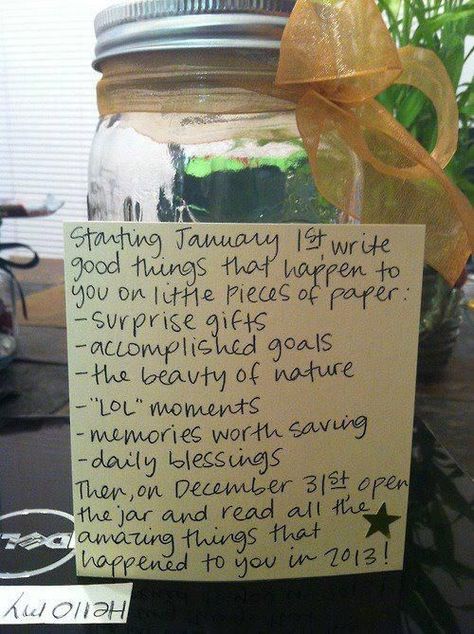 Starting January 1st, write
good things that happen to
you on little pieces of paper:
-surprise gifts
-accomplished goals
-the beauty of nature
-"LOL" moments
-memories worth saving
-daily blessings
Then, on December 31st open
the jar and read all the
amazing things that
happened to you in 2013!
DELL
HELLO my